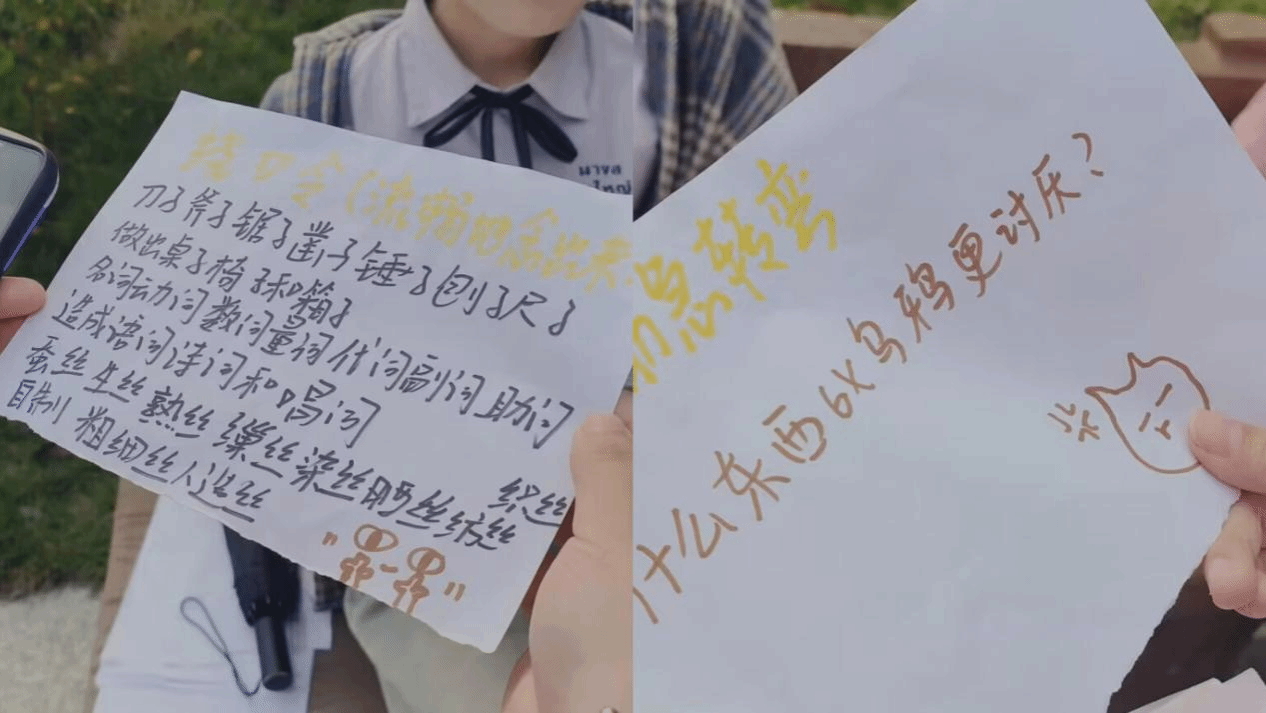 绕口令(流畅地念出来
刀子斧子锯子凿子锤子刨子尺子
做出桌子椅子和箱子
名词动词数词量词代词副词助词
造成语词诗词和唱词
蚕丝生丝熟丝缫丝染丝晒丝纺丝织丝
自制粗细丝人造丝
ใหญ่
急转弯
什么东西比乌鸦更讨厌?